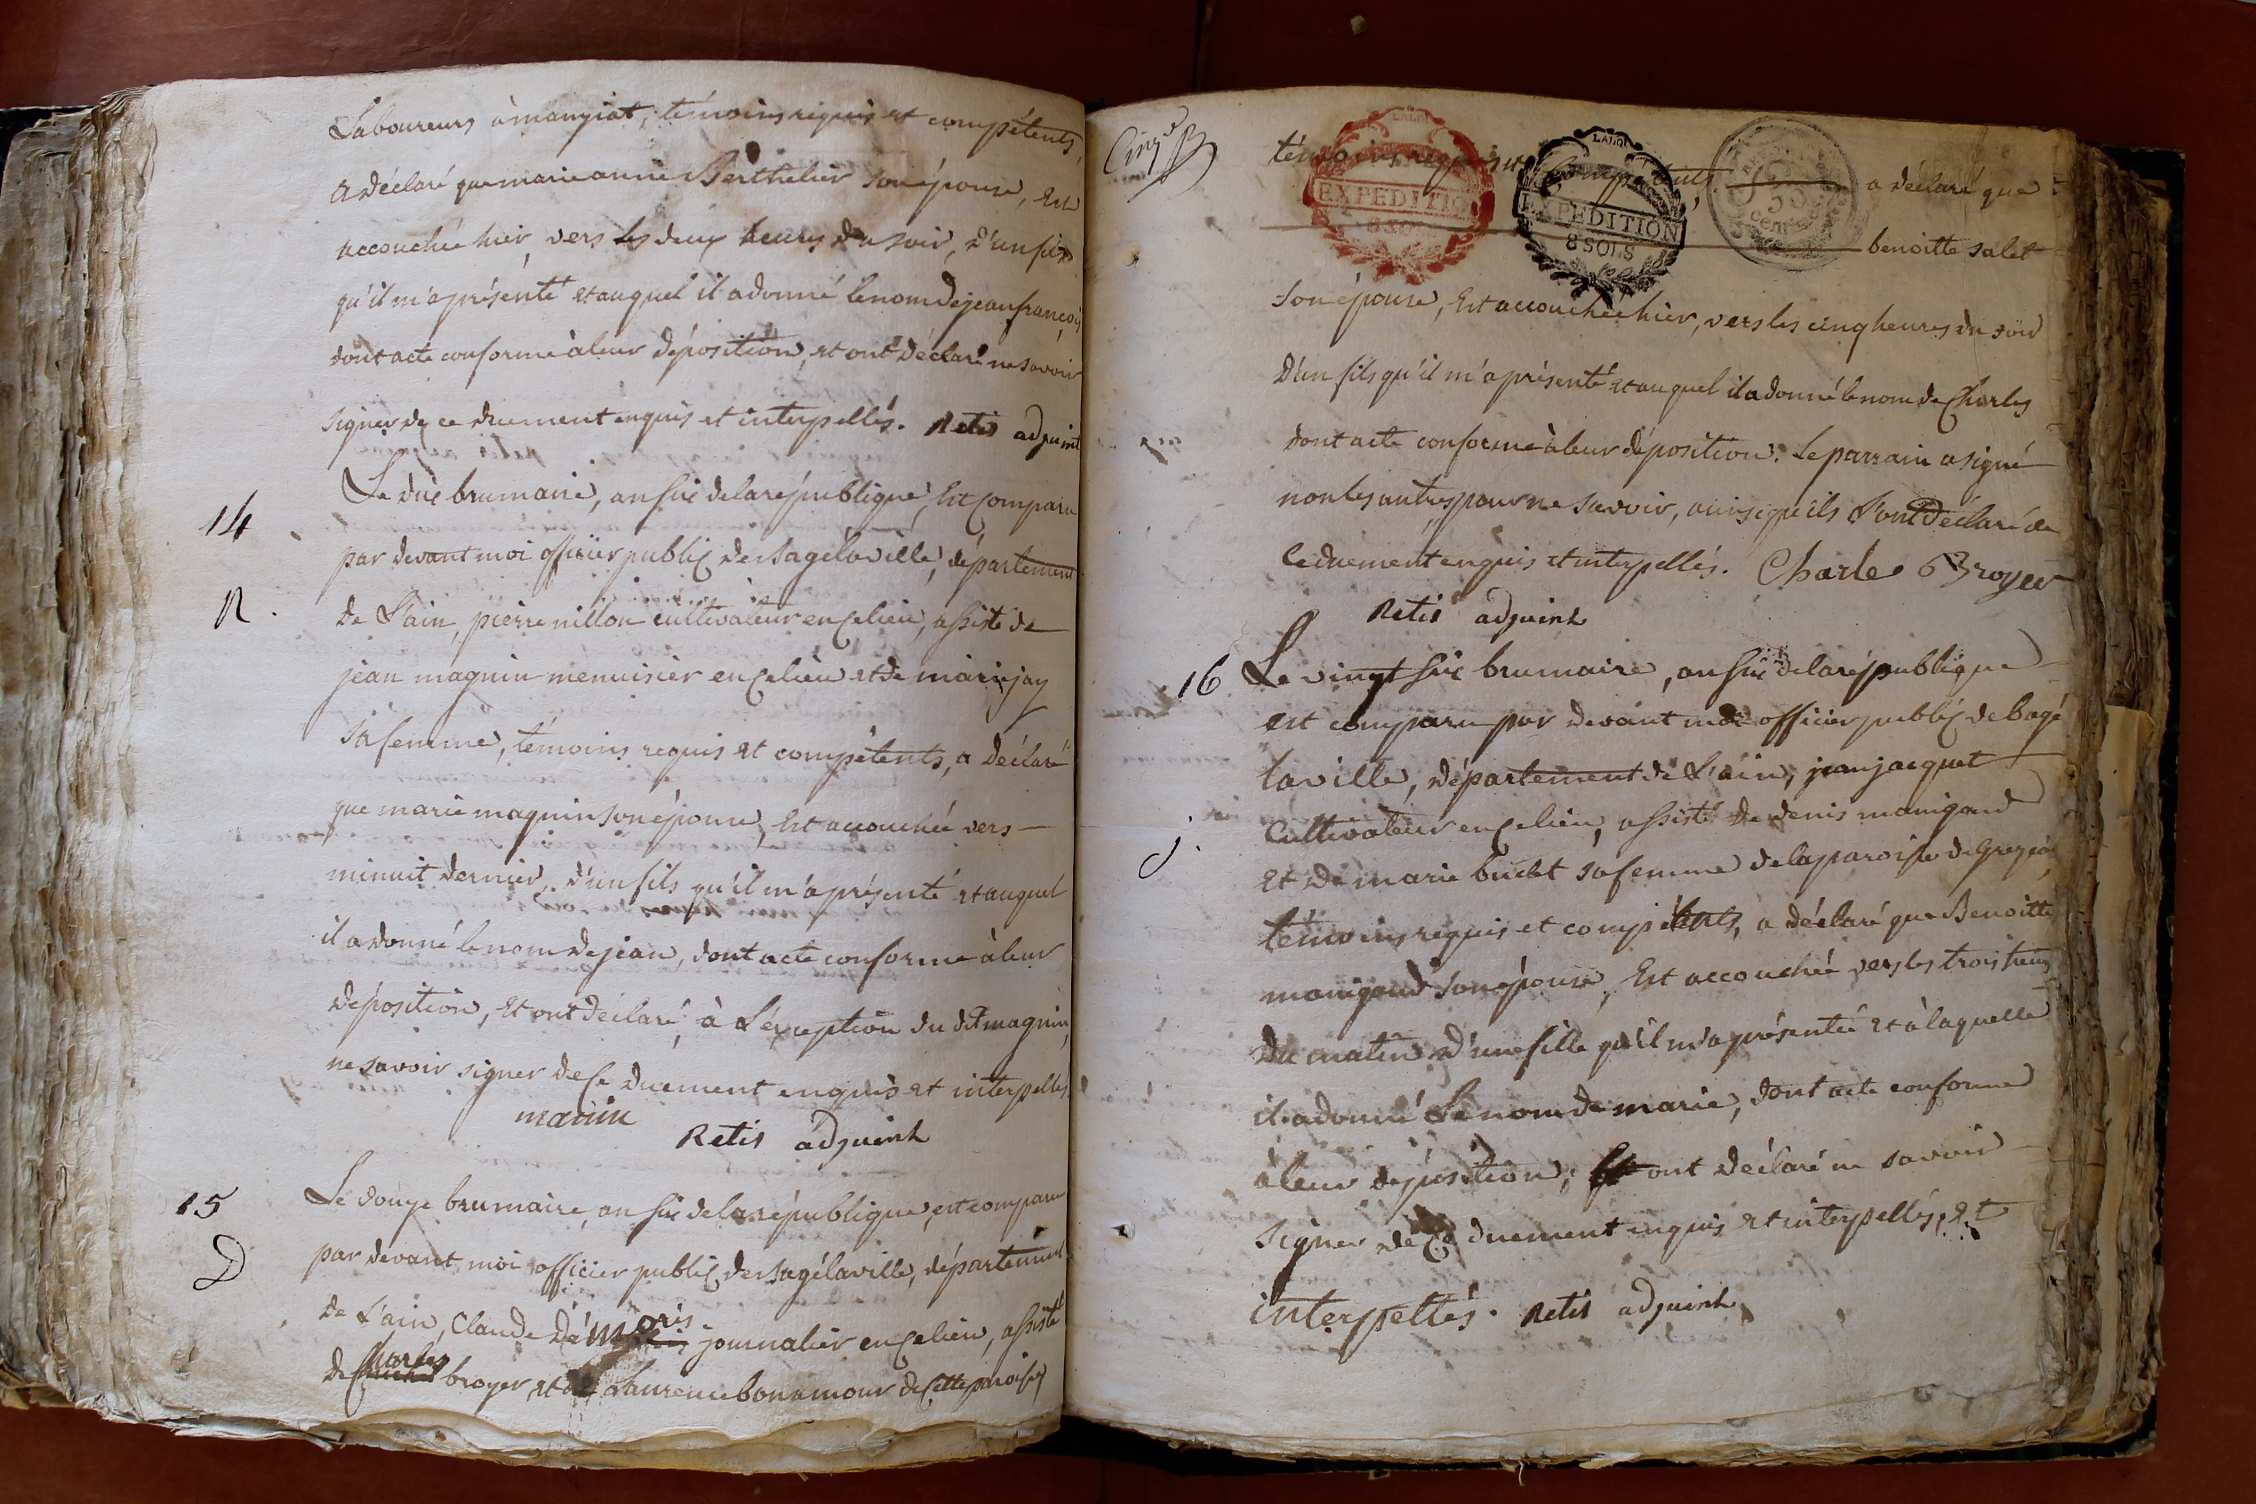 Laboureurs à mangiat, témoins requis et compétents,
a déclaré que marie anne Berthelier son épouse, Est
accouchée hier, vers les deux heures du soir, d'un fils
qu'il m'a présenté et auquel il a donné le nom de jean françois
dont acte conforme à leur déposition, et ont déclaré ne savoir
signer de ce duement enquis et interpellés. Retis adjuint
14
Le dix brumaire, an six de la république, Est comparu
par devant moi officier public de bagé la ville, département
N.
de L'ain, pierre nillon cultivateur en ce lieu, assisté de
jean magnin menuisier en ce lieu et de marie jay
sa femme, témoins requis et compétents, a déclaré
que marie magnin son épouse, Est accouchée vers
minuit dernier, d'un fils qu'il m'a présenté et auquel
il a donné le nom de jean, dont acte conforme à leur
déposition, Et ont déclaré, à L'exception du dt magnin,
ne savoir signer de Ce duement enquis et interpellés
manin
Retis adjuint
15
Le douze brumaire, an six de la république, est comparu
par devant moi officier public de bagé la ville, département
D
de L'ain, Claude Dé moris journalier en ce lieu, assisté
de Charles broyer, et de Laurence bonamour de Cette paroisse
Cinq
témoins requis et compétents, a déclaré que
benoitte salet
son épouse, Est accouchée hier, vers les cinq heures du soir
D'un fils qu'il m'a présenté et auquel il a donné le nom de Charles
dont acte conforme à leur déposition. Le parrain a signé
non les autres pour ne savoir, ainsi qu'ils L'ont déclaré de
Ce duement enquis et interpellés. Charle Broyer
Retis adjuint
16
Le vingt six brumaire, an six de la république
est comparu par devant moi officier public de bagé
la ville, département de L'ain, jean jacquet
Cultivateur en ce lieu, assisté de denis manigand
j.
et de marie buchet sa femme de la paroisse de
témoins requis et compétents, a déclaré que Benoitte
manigand son épouse, Est accouchée vers les trois heures
du matin d'une fille qu'il m'a présentée et à laquelle
il a donné Le nom de marie, dont acte conforme
à leur déposition; ont déclaré ne savoir
signer de Ce duement enquis et interpellés, et
interpellés. Retis adjuint
LA LOI
EXPEDITION
8 SOLS
LA LOI
EXPEDITION
8 SOLS
centimes